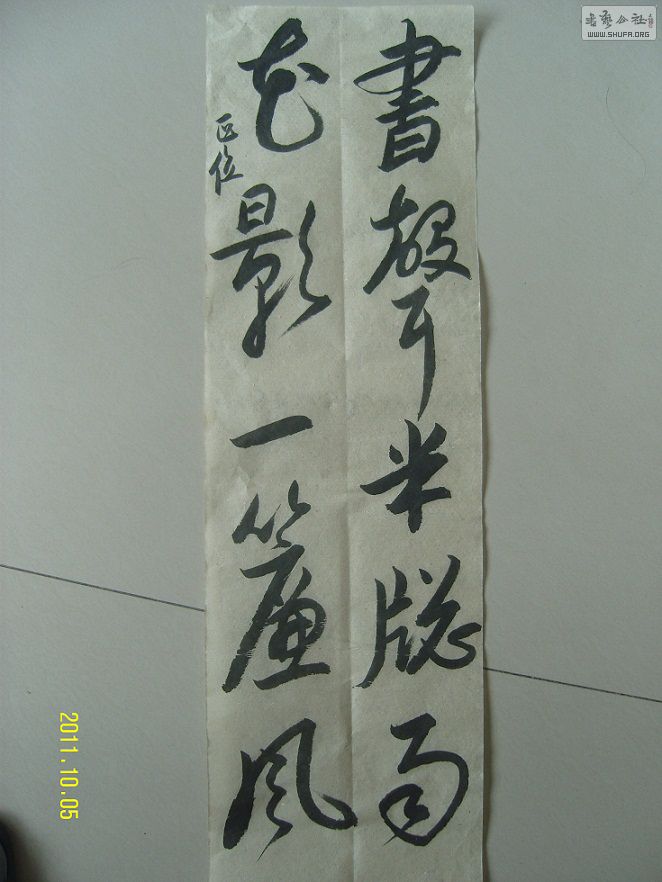 書聲半牕雨
花影一簾風
書藝公社
WWW.SHUFA.ORG
2011.10.05